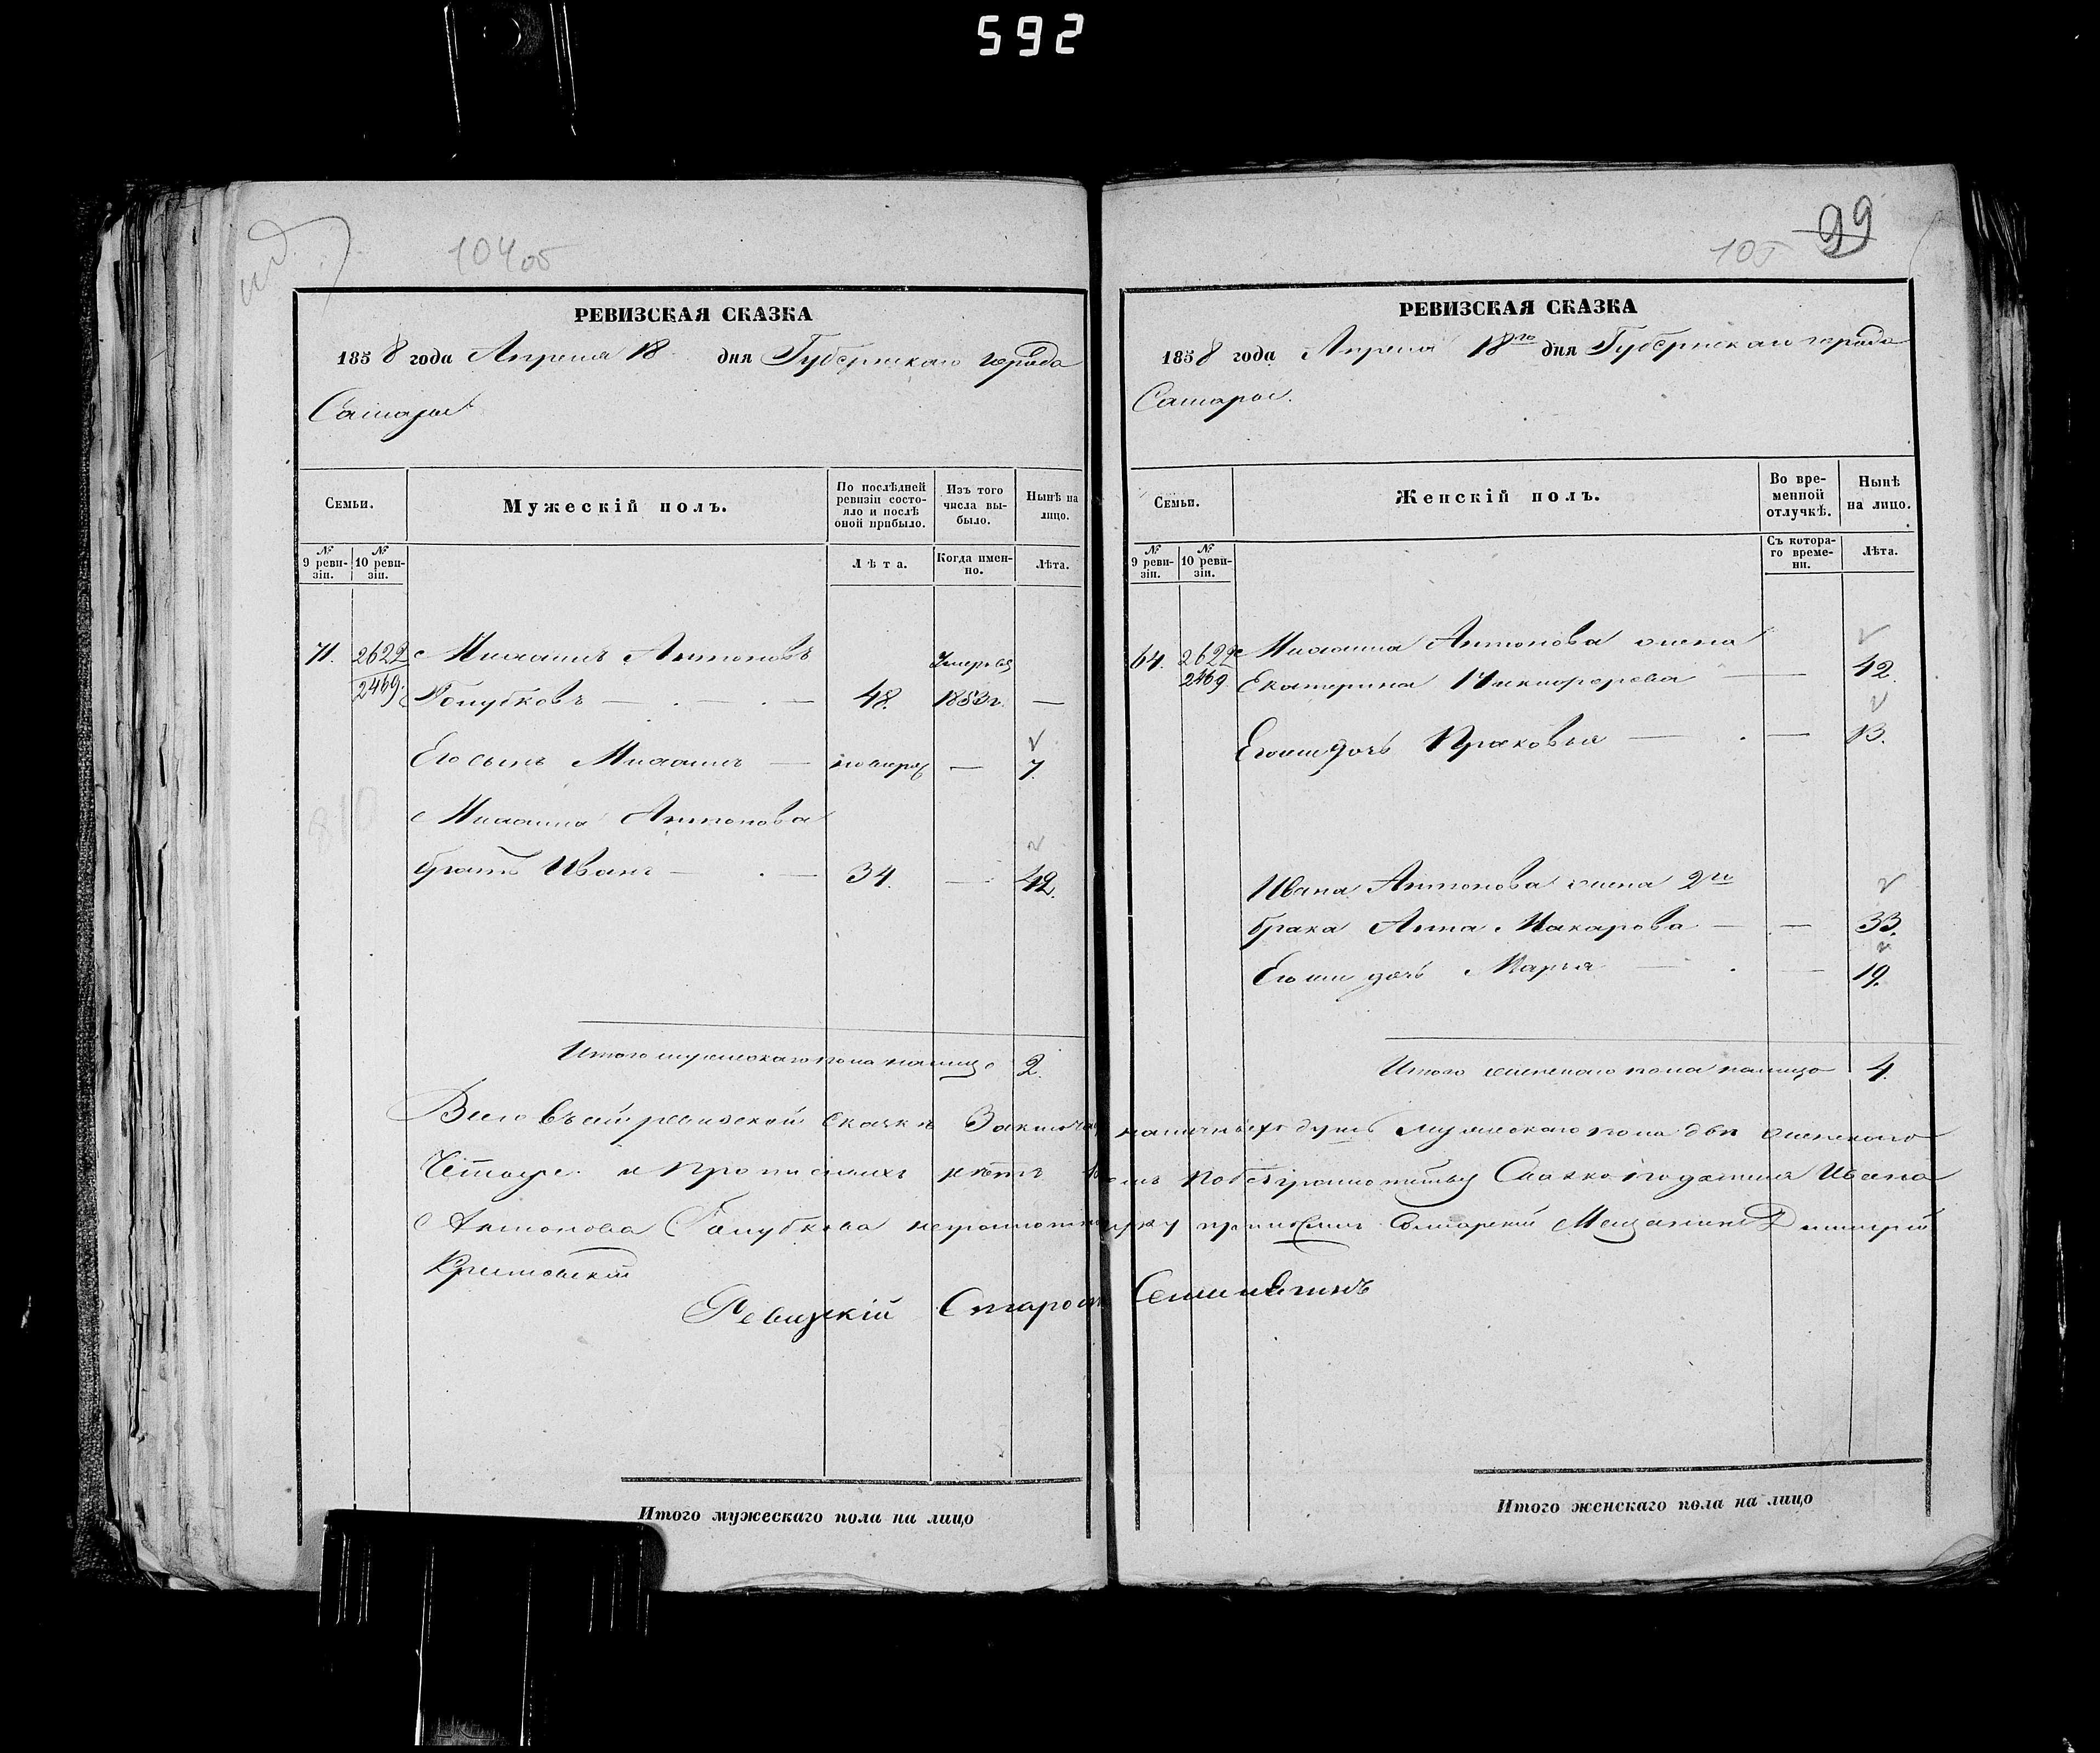 592
104об
РЕВИЗСКАЯ СКАЗКА
1858 года Апреля 18 дня Губернскаго города
Самары
Семьи.
Мужескій полъ.
По послѣдней ревизіи состояло и послѣ оной прибыло.
Изъ того числа выбыло.
Нынѣ на лицо.
№ 9 ревизіи.
№ 10 ревизіи.
Лѣта.
Когда именно.
Лѣта.
71. 2622 Михаилъ Антоновъ Умеръ въ
2469. Голубковъ — 48. 1853 г. —
Его сынъ Михаилъ — — 7.
Михаила Антонова
братъ Иванъ — 34. — 42.
Итого мужескаго пола налицо 2.
105 99
РЕВИЗСКАЯ СКАЗКА
1858 года Апреля 18го дня Губернскаго города
Самары.
Семьи.
Женскій полъ.
Во временной отлучкѣ.
Нынѣ на лицо.
№ 9 ревизіи.
№ 10 ревизіи.
Съ котораго времени.
Лѣта.
64. 2622 Михаила Антонова жена
2469 Екатерина Никифорова — 42.
Егоже дочь Прасковья — — 13.
Ивана Антонова жена 2го
брака Анна Макарова — — 33.
Егоже дочь Марья — — 19.
Итого женскаго пола налицо 4.
Всего въ сей ревизской сказкѣ Заключ наличныхъ душъ мужескаго пола две женскаго
Четыре и прописныхъ нетъ По безграмотству Сказкоподателя Ивана
Антонова Голубкова Самарскій Мещанинъ Дмитрій
Ревизкій Старост
Итого мужескаго пола на лицо
Итого женскаго пола на лицо